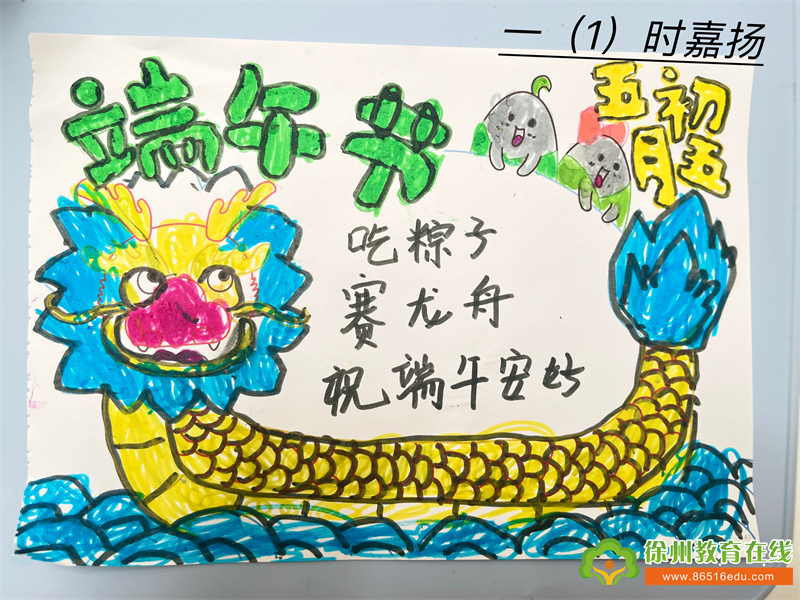 一（1）时嘉扬
端午节
五月
初五
吃粽子
赛龙舟
祝端午安好
徐州教育在线
www.86516edu.com